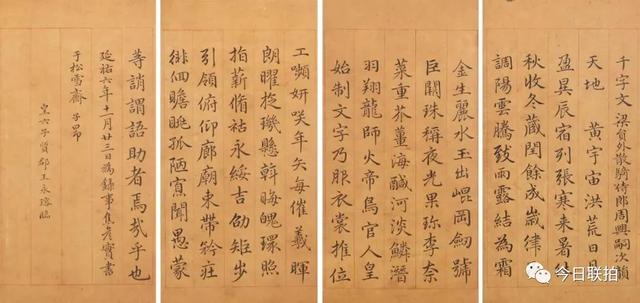 千字文 梁員外散騎侍郎周興嗣次韻
天地 黃宇宙洪荒日月
盈昃辰宿列張寒来暑往
秋收冬藏閏餘成歲律
調陽雲騰致雨露結為霜
金生麗水玉出崐岡劒號
巨闕珠稱夜光果珎李奈
菜重芥薑海醎河淡鱗潛
羽翔龍師火帝鳥官人皇
始制文字乃服衣裳推位
工嚬妍咲年矢每催羲暉
朗曜琁璣懸斡晦魄環照
指薪脩祜永綏吉劭矩步
引領俯仰廊廟束帶矜莊
徘徊瞻眺孤陋寡聞愚蒙
等誚謂語助者焉哉乎也
延祐六年十月廿三日為錄事焦彥實書
于松雪齋 子昂
皇六子質郡王永瑢臨
今日联拍